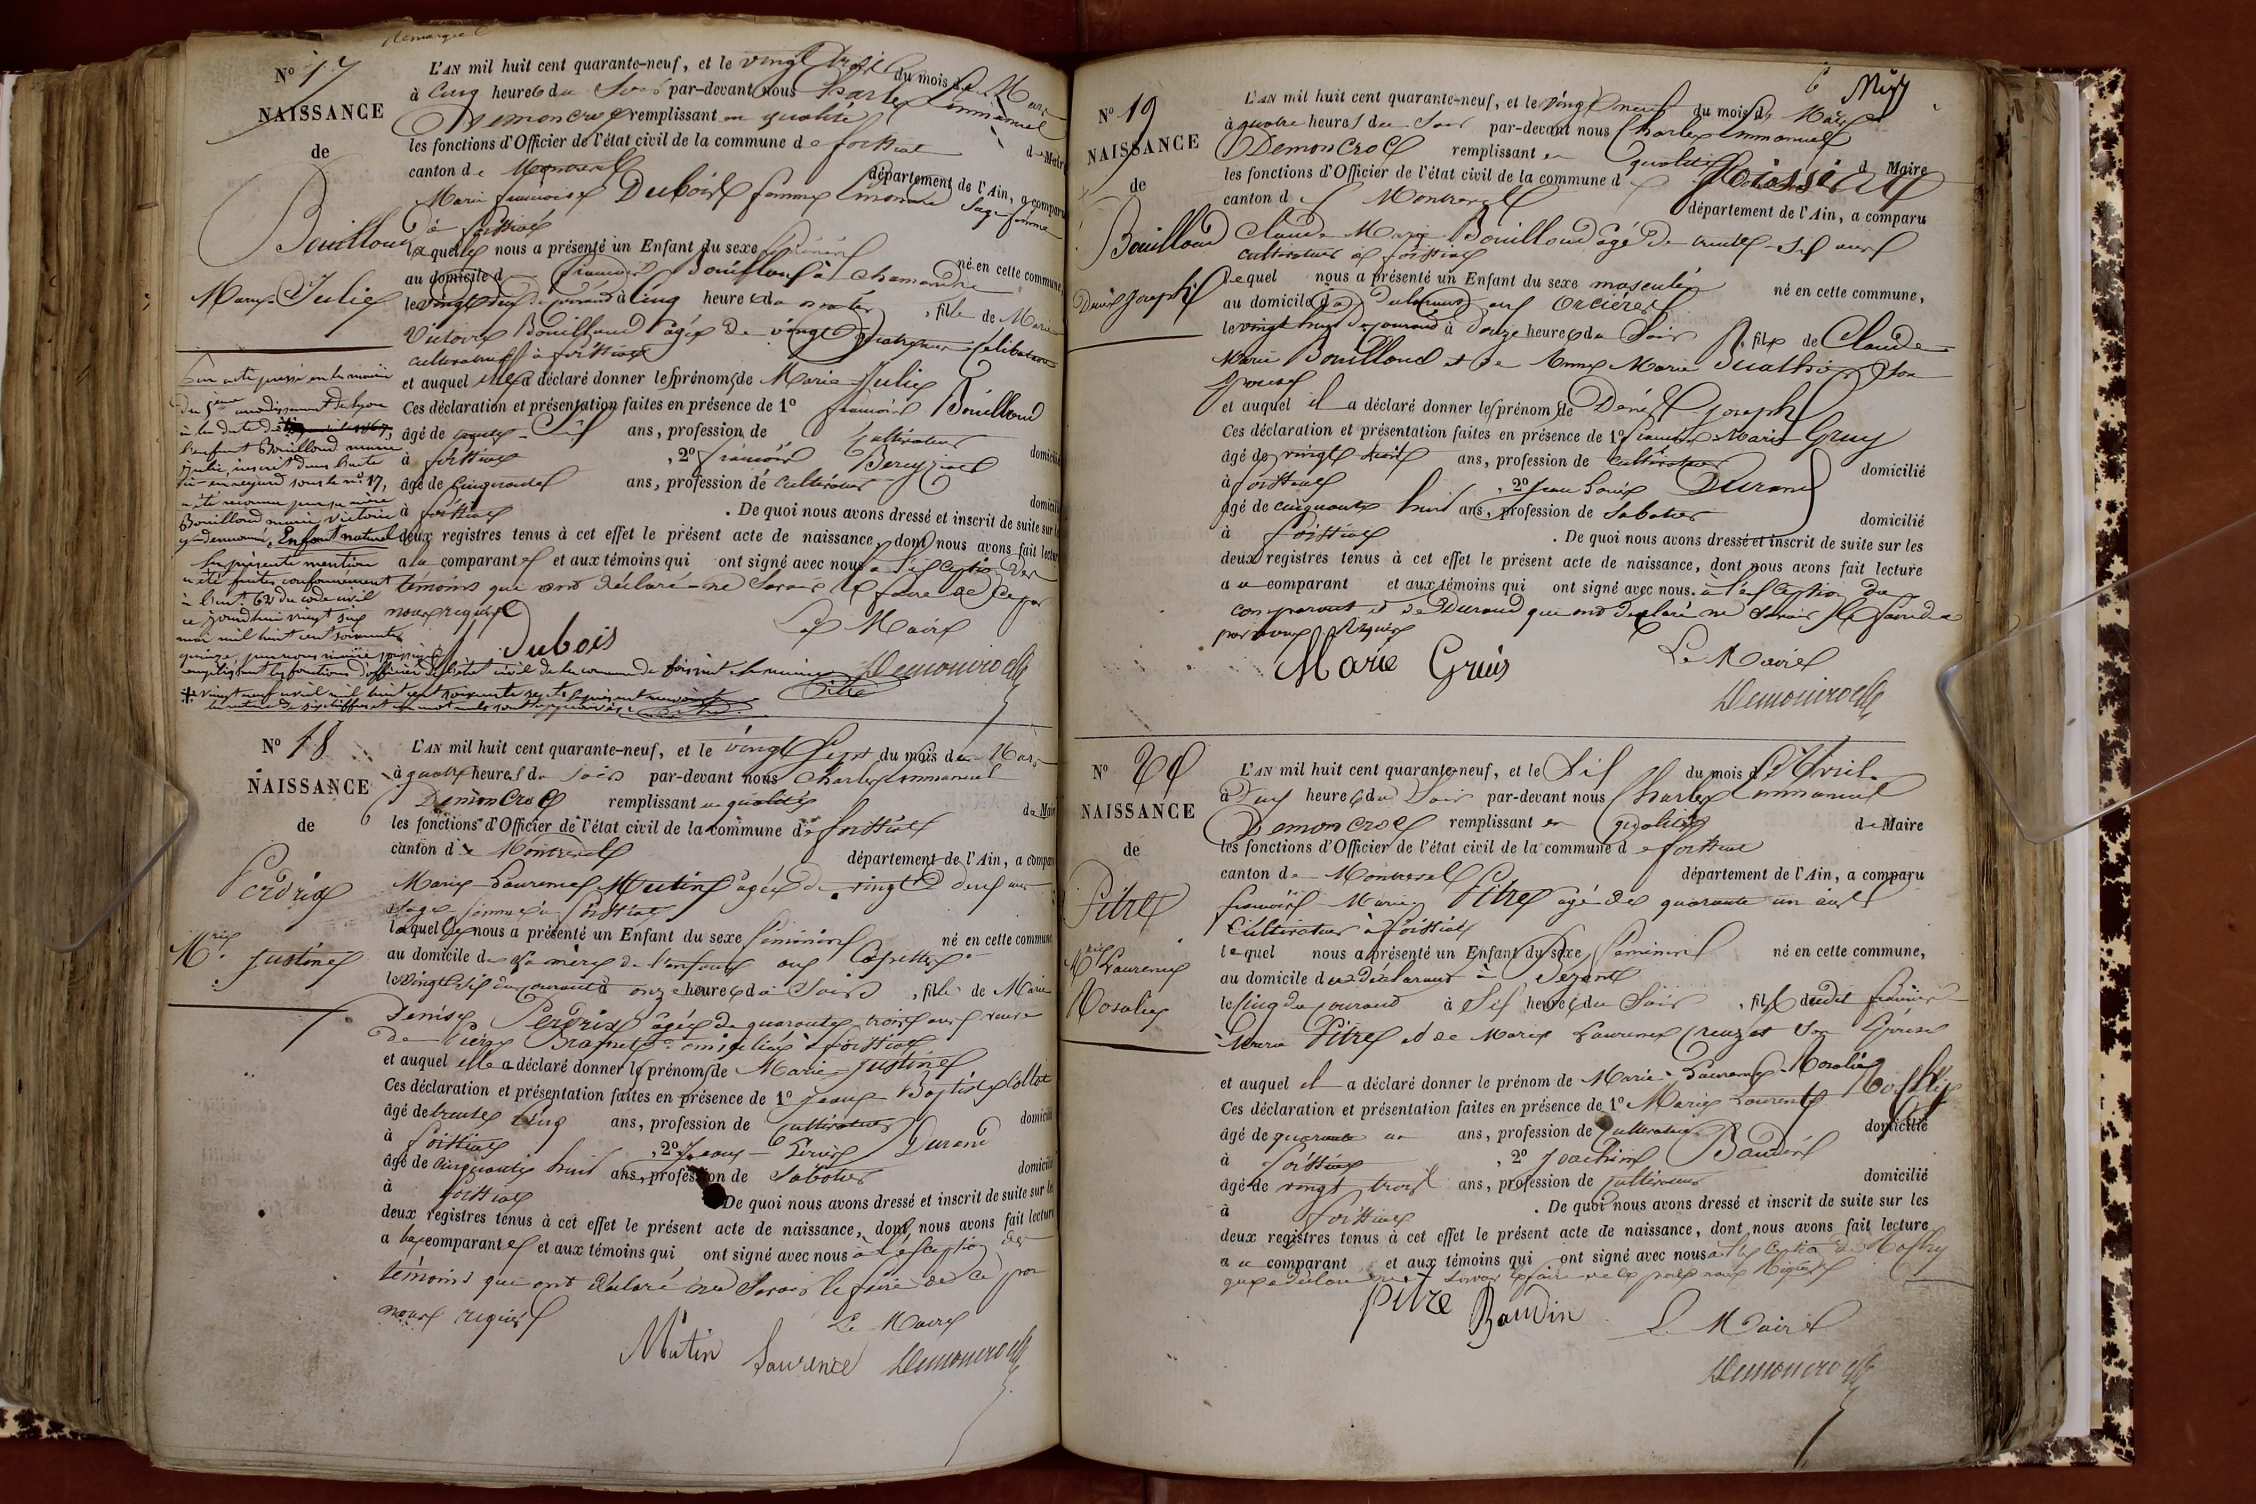 N° 17
NAISSANCE
de
Bouilloud
Marie Julie
L'AN mil huit cent quarante-neuf, et le vingt trois du mois de Mars
à cinq heures du soir par-devant nous Charles Emmanuel
Demoncroc remplissant en qualité de Maire
les fonctions d'Officier de l'état civil de la commune de foissiat
canton de Montrevel département de l'Ain, a comparu
Marie françoise Dubois femme sage femme
à foissiat
laquelle nous a présenté un Enfant du sexe féminin né en cette commune,
au domicile de françois Bouilloud à
le vingt deux du courant à cinq heures du matin, fille de Marie
Victoire Bouilloud âgée de vingt quatre ans célibataire
cultivatrice à foissiat
et auquel elle a déclaré donner les prénoms de Marie Julie
Ces déclaration et présentation faites en présence de 1° françois Bouilloud
âgé de ans, profession de cultivateur domicilié
à foissiat, 2° françois
âgé de cinquante ans, profession de cultivateur domicilié
à foissiat. De quoi nous avons dressé et inscrit de suite sur les
deux registres tenus à cet effet le présent acte de naissance, dont nous avons fait lecture
a la comparante et aux témoins qui ont signé avec nous à l'exception des
témoins qui ont déclaré ne savoir le faire de ce par
nous requis
Le Maire
Dubois
Par acte passé en la mairie
du 5eme arrondissement de Lyon
à la date du
l'enfant Bouilloud marie
Julie, inscrit dans l'acte
ci-en regard sous le n° 17,
a été reconnu par sa mère
Bouilloud marie Victoire
Enfant naturel
La présente mention
a été faite conformément
à l'art. 62 du code civil
ce jourd'hui vingt six
mai mil huit cent soixante
quinze par nous maire soussigné
remplissant les fonctions d'officier de l'état civil de la commune de foissiat
* vingt neuf avril mil huit cent soixante sept
N° 18
NAISSANCE
de
Perdrix
Mrie Justine
L'AN mil huit cent quarante-neuf, et le vingt sept du mois de Mars
à quatre heures du soir par-devant nous Charles Emmanuel
Demoncroc remplissant en qualité de Maire
les fonctions d'Officier de l'état civil de la commune de foissiat
canton de Montrevel département de l'Ain, a comparu
Marie Laurence Mutin âgée de vingt deux ans
sage femme à foissiat
laquelle nous a présenté un Enfant du sexe féminin né en cette commune
au domicile de la mère de l'enfant aux
le vingt six du courant à onze heures du soir, fille de Marie
Denise Perdrix âgée de quarante trois ans veuve
de Pierre domiciliée à foissiat
et auquel elle a déclaré donner les prénoms de Marie Justine
Ces déclaration et présentation faites en présence de 1° Jean Baptiste Collet
âgé de trente cinq ans, profession de cultivateur domicilié
à foissiat, 2° Jean Louis Durand
âgé de cinquante huit ans, profession de sabotier domicilié
à foissiat De quoi nous avons dressé et inscrit de suite sur les
deux registres tenus à cet effet le présent acte de naissance, dont nous avons fait lecture
a la comparante et aux témoins qui ont signé avec nous à l'exception des
témoins qui ont déclaré ne savoir le faire de ce par
nous requis
Le Maire
Mutin Laurence
N° 19
NAISSANCE
de
Bouilloud
Denis Joseph
L'AN mil huit cent quarante-neuf, et le vingt neuf du mois de Mars
à quatre heures du soir par-devant nous Charles Emmanuel
Demoncroc remplissant en qualité de Maire
les fonctions d'Officier de l'état civil de la commune de foissiat
canton de Montrevel département de l'Ain, a comparu
Claude Marie Bouilloud âgé de trente six ans
cultivateur à foissiat
lequel nous a présenté un Enfant du sexe masculin né en cette commune,
au domicile du déclarant aux Orcières
le vingt huit du courant à onze heures du soir, fils de Claude
Marie Bouilloud et de Anne Marie son
épouse
et auquel il a déclaré donner les prénoms de Denis Joseph
Ces déclaration et présentation faites en présence de 1° Marie Gruy
âgé de vingt huit ans, profession de cultivateur domicilié
à foissiat, 2° Jean Louis Durand
âgé de cinquante huit ans, profession de sabotier domicilié
à foissiat. De quoi nous avons dressé et inscrit de suite sur les
deux registres tenus à cet effet le présent acte de naissance, dont nous avons fait lecture
a u comparant et aux témoins qui ont signé avec nous à l'exception du
comparant et de Durand qui ont déclaré ne savoir le faire de ce
par nous requis
Le Maire
Marie Gruis
N° 20
NAISSANCE
de
Pitre
Mrie Laurence
Rosalie
L'AN mil huit cent quarante-neuf, et le six du mois d'Avril
à deux heures du soir par-devant nous Charles Emmanuel
Demoncroc remplissant en qualité de Maire
les fonctions d'Officier de l'état civil de la commune de foissiat
canton de Montrevel département de l'Ain, a comparu
françois Marie Pitre âgé de quarante un ans
cultivateur à foissiat
lequel nous a présenté un Enfant du sexe féminin né en cette commune,
au domicile du déclarant à
le cinq du courant à six heures du soir, fille dudit françois
Marie Pitre et de Marie Laurence Creuzet son épouse
et auquel il a déclaré donner le prénom de Marie Laurence Rosalie
Ces déclaration et présentation faites en présence de 1° Marie Laurent
âgé de quarante un ans, profession de cultivateur domicilié
à foissiat, 2° Joachim Baudin
âgé de vingt trois ans, profession de cultivateur domicilié
à foissiat. De quoi nous avons dressé et inscrit de suite sur les
deux registres tenus à cet effet le présent acte de naissance, dont nous avons fait lecture
a u comparant et aux témoins qui ont signé avec nous à l'exception de
qui a déclaré ne savoir le faire de ce par nous requis
Pitre Baudin
Le Maire